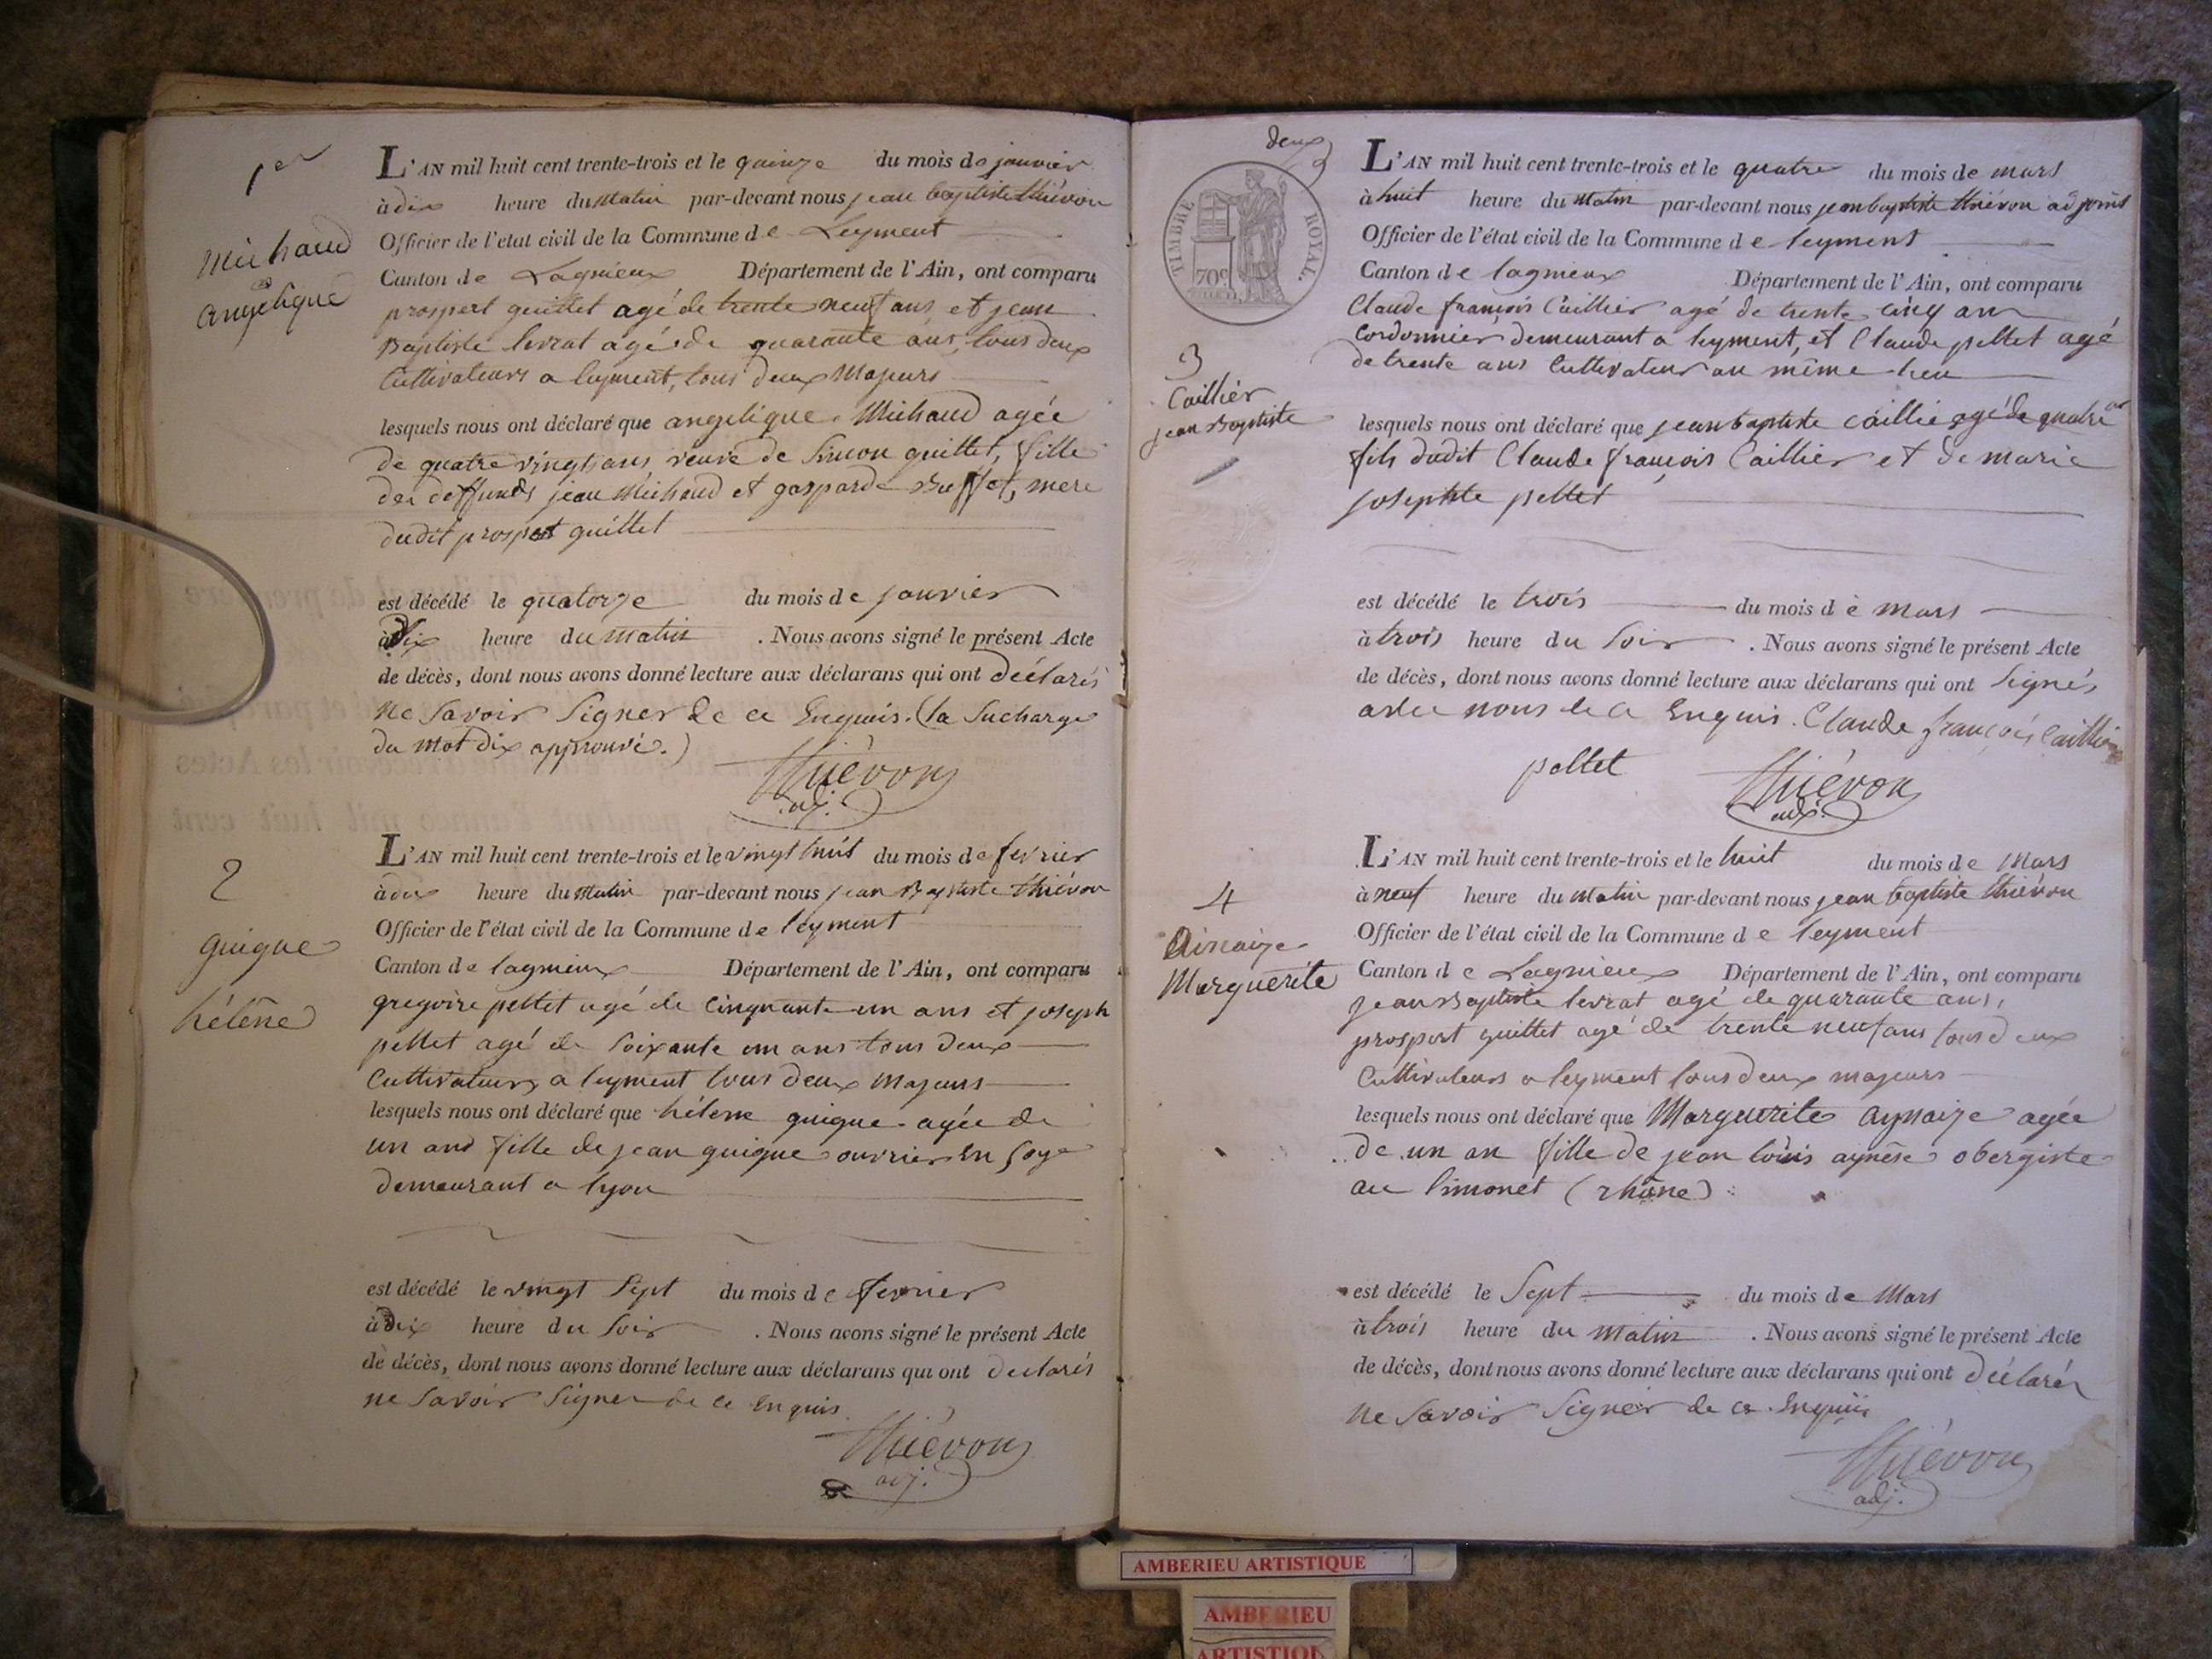 1er
Michaud
angélique
L'AN mil huit cent trente-trois et le quinze du mois de janvier
à dix heure du matin par-devant nous jean baptiste thiévon
Officier de l'etat civil de la Commune de Leyment
Canton de Lagnieux Département de l'Ain, ont comparu
prospert quittet agé de trente neuf ans et jean
Baptiste levrat agé de quarante ans, tous deux
Cultivateurs a leyment, tous deux Majeurs
lesquels nous ont déclaré que angelique Michaud agée
de quatre vingt ans, veuve de Simon quittet, fille
des deffunds jean Michaud et gasparde Buffet, mere
dudit prospert quittet
est décédé le quatorze du mois de janvier
à Dix heure du matin . Nous avons signé le présent Acte
de décès, dont nous avons donné lecture aux déclarans qui ont déclarés
ne Savoir Signer de ce Enquis. (la Sucharge
du Mot dix approuvé.)
thiévon
adj.
2
guigue
hélène
L'AN mil huit cent trente-trois et le vingt huit du mois de fevrier
à dix heure du matin par-devant nous jean Baptiste thiévon
Officier de l'état civil de la Commune de leyment
Canton de lagnieux Département de l'Ain, ont comparu
gregoire pettet agé de Cinquante un ans et joseph
pettet agé de Soixante un ans tous deux
Cultivateurs a leyment tous deux Majeurs
lesquels nous ont déclaré que hélene guigue agée de
un and fille de jean guigue ouvrier en Soye
demeurant a lyon
est décédé le vingt Sept du mois de fevrier
à Dix heure du Soir . Nous avons signé le présent Acte
de décès, dont nous avons donné lecture aux déclarans qui ont declarés
ne Savoir Signer de ce Enquis.
thiévon
adj.
deux
TIMBRE ROYAL.
70c
3
Caillier
jean Baptiste
L'AN mil huit cent trente-trois et le quatre du mois de mars
à huit heure du matin par-devant nous jean baptiste thiévon adjoint
Officier de l'état civil de la Commune de leyment
Canton de lagnieux Département de l'Ain, ont comparu
Claude françois Caillier agé de trente cinq ans
Cordonnier demeurant a leyment, et Claude pettet agé
de trente ans Cultivateur au même lieu
lesquels nous ont déclaré que jean baptiste caillie agé de quatre an
fils dudit Claude françois Caillier et de marie
josephte pettet
est décédé le trois du mois de mars
à trois heure du Soir . Nous avons signé le présent Acte
de décès, dont nous avons donné lecture aux déclarans qui ont Signés
avec nous de ce Enquis. Claude françois Caillier
pettet thiévon
adj.
4
Ainaize
Marguerite
L'AN mil huit cent trente-trois et le huit du mois de Mars
à neuf heure du matin par-devant nous jean baptiste thiévon
Officier de l'état civil de la Commune de leyment
Canton de Lagnieux Département de l'Ain, ont comparu
jean Baptiste levrat agé de quarante ans,
prospert quittet agé de trente neuf ans tous deux
Cultivateurs a leyment tous deux majeurs
lesquels nous ont déclaré que Marguerite aynaize agée
de un an fille de jean louis aynése obergiste
au limonet (rhône)
est décédé le Sept du mois de Mars
à trois heure du matin . Nous avons signé le présent Acte
de décès, dont nous avons donné lecture aux déclarans qui ont déclarés
ne Savoir Signer de ce Enquis
thiévon
adj.
AMBERIEU ARTISTIQUE
AMBERIEU
ARTISTIQU